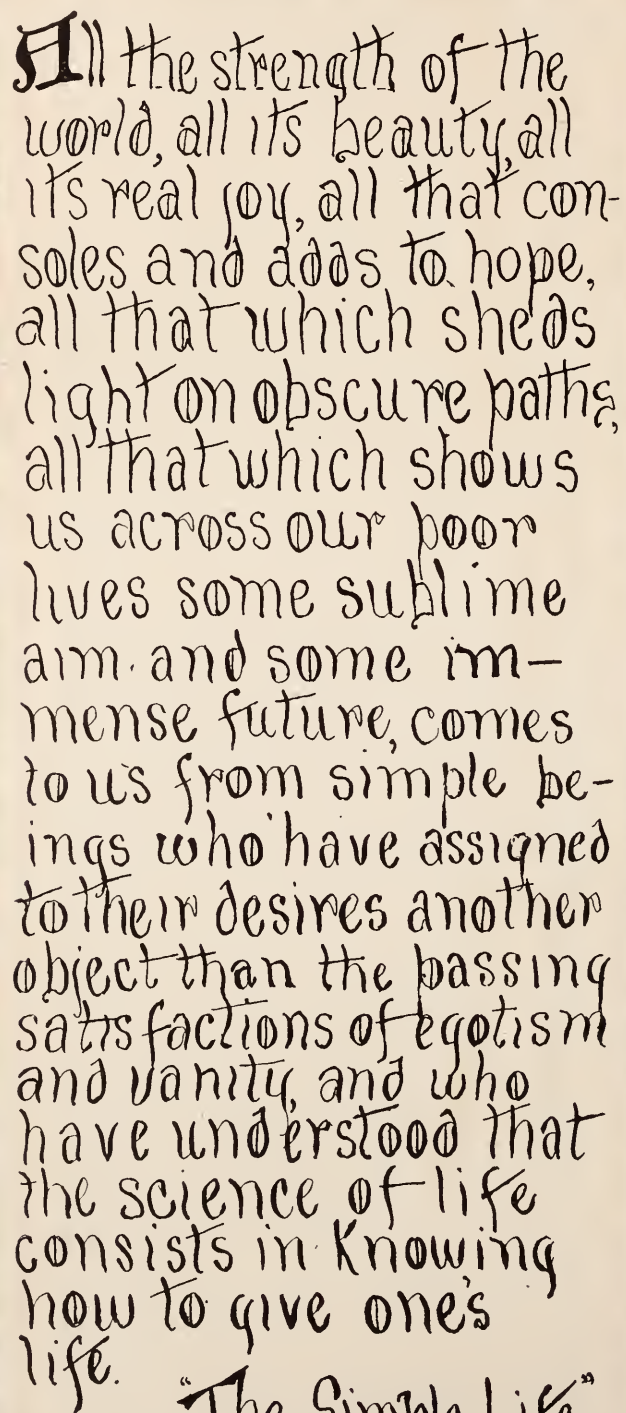 All the strength of the
world, all its beauty, all
its real joy, all that con-
soles and adds to hope,
all that which sheds
light on obscure paths,
all that which shows
us across our poor
lives some sublime
aim and some im-
mense future, comes
to us from simple be-
ings who have assigned
to their desires another
object than the passing
satisfactions of egotism
and vanity, and who
have understood that
the science of life
consists in knowing
how to give one's
life.
"The Simple Life"